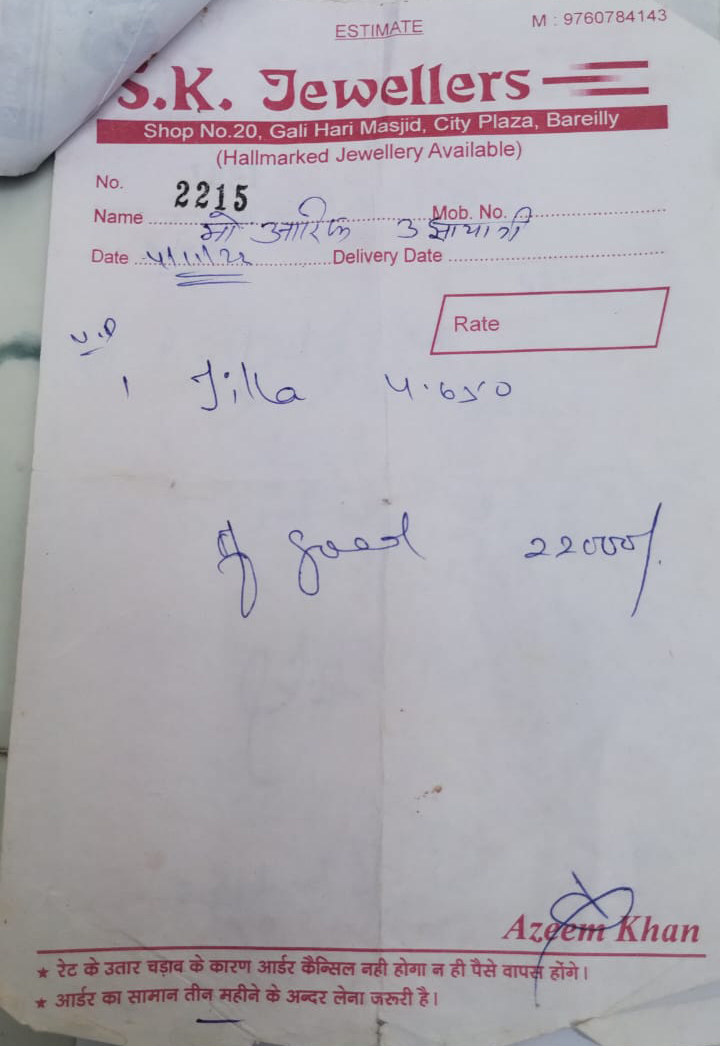 ESTIMATE
M : 9760784143
S.K. Jewellers
Shop No.20, Gali Hari Masjid, City Plaza, Bareilly
(Hallmarked Jewellery Available)
No. 2215
Name मो आरिफ Mob. No.
Date 4/11/22 Delivery Date
Rate
1 Tilla 4.650
22000/.
Azeem Khan
★ रेट के उतार चड़ाव के कारण आर्डर कैन्सिल नही होगा न ही पैसे वापस होंगे।
★ आर्डर का सामान तीन महीने के अन्दर लेना जरूरी है।